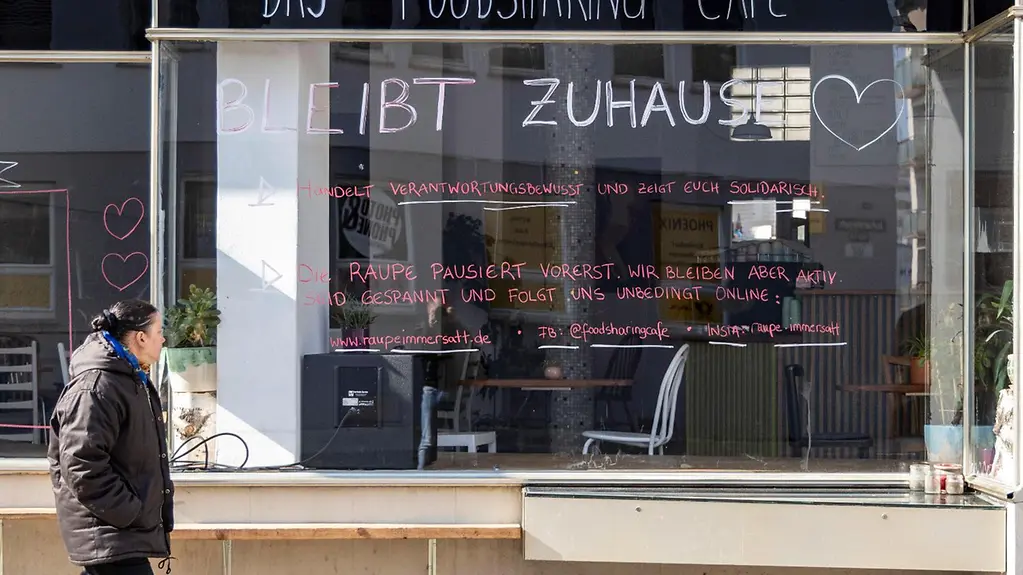 DAS FOODSHARING CAFÉ
BLEIBT ZUHAUSE
HANDELT VERANTWORTUNGSBEWUSST UND ZEIGT EUCH SOLIDARISCH.
DIE RAUPE PAUSIERT VORERST. WIR BLEIBEN ABER AKTIV.
SEID GESPANNT UND FOLGT UNS UNBEDINGT ONLINE:
www.raupeimmersatt.de • FB: @foodsharingcafe • INSTA: raupe.immersatt
PHOTO &
PHONE
PHOENIX